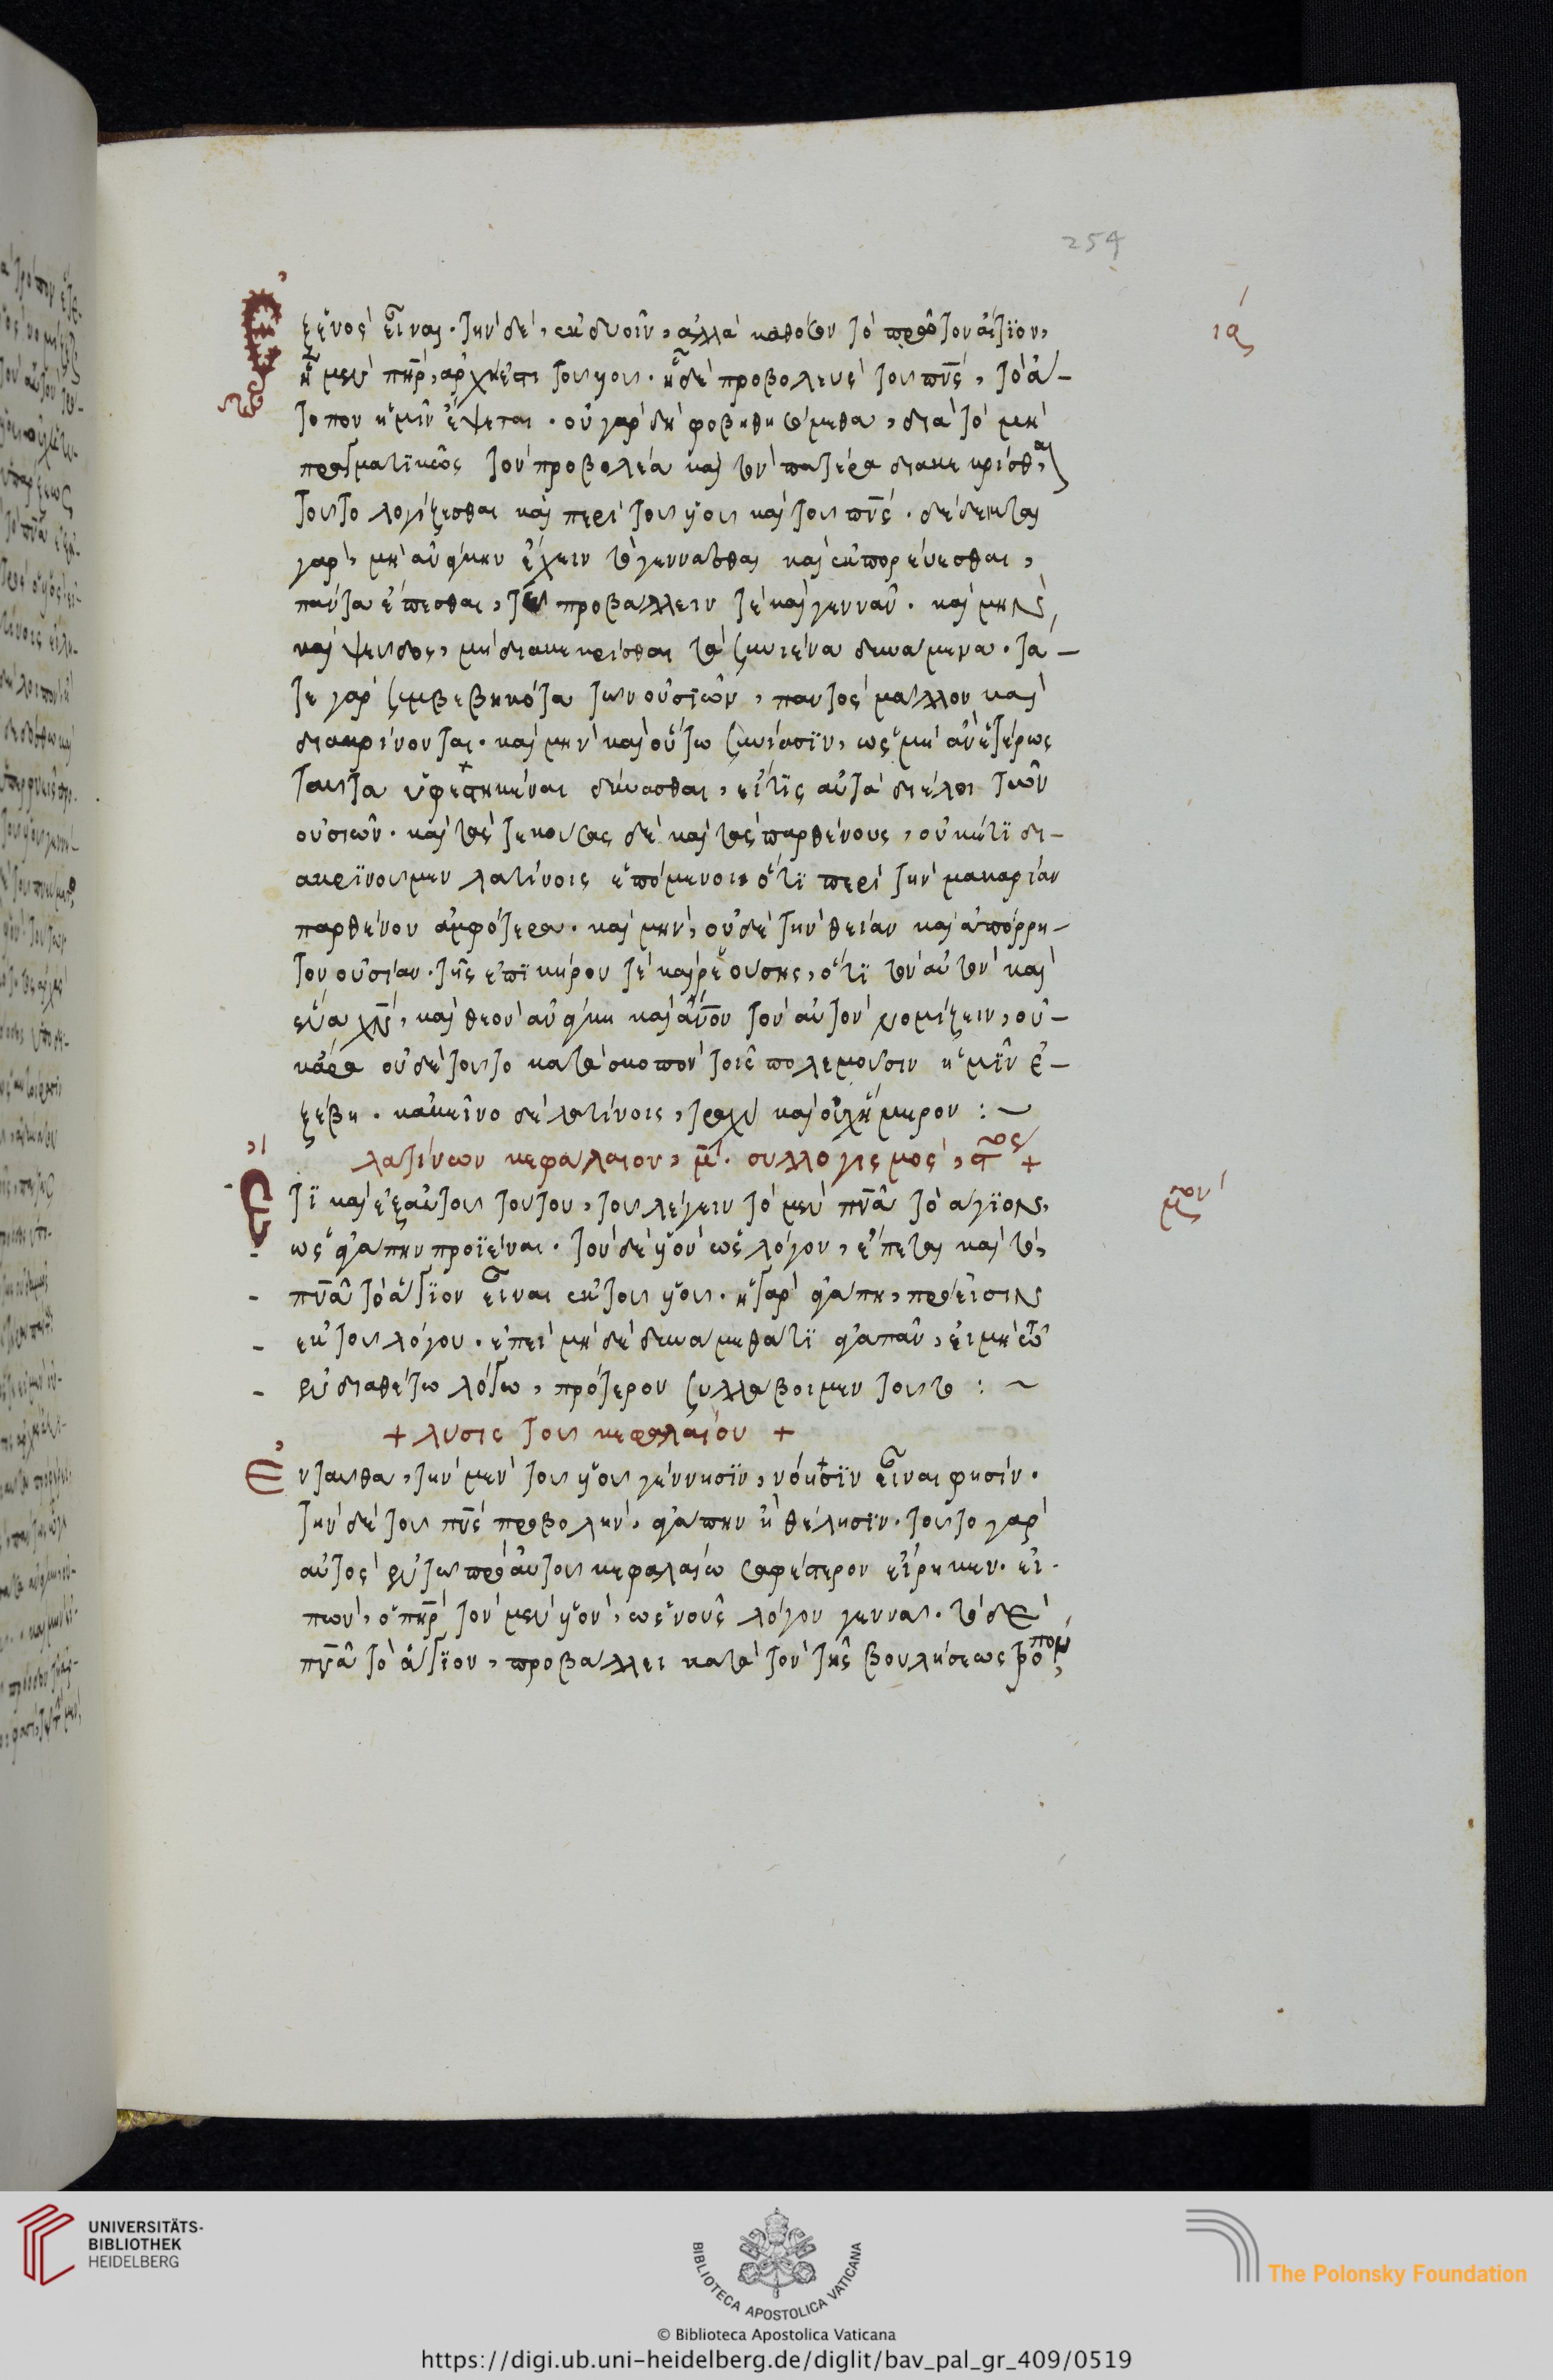 254
ἐξ ἑνὸς εἶναι. τὴν δὲ, ἐκ δυοῖν, ἀλλὰ καθόσον τὸ πρῶτον αἴτιον,
ιᾳ
ᾗ μὲν πῆρ, ἀρχή ἐστι τοῦ υἱοῦ. ᾗ δὲ προβολεὺς τοῦ πνς, τὸ ἄ-
τοπον ἡμῖν ἕψεται. οὐ γὰρ δὴ φοβηθησόμεθα, διὰ τὸ μὴ
πραγματικῶς τὸν προβολέα καὶ τὸν πατέρα διακεκρίσθαι,
τοῦτο λογίζεσθαι καὶ περὶ τοῦ υἱοῦ καὶ τοῦ πνς. δέδεικται
γὰρ, μὴ ἀνάγκην ἔχειν τὸ γεννᾶσθαι καὶ ἐκπορεύεσθαι,
πάντα ἕπεσθαι, τῷ προβάλλειν τὲ καὶ γεννᾶν. καὶ μὴν,
καὶ ψεῦδος, μὴ διακεκρίσθαι τὰ συνιέναι δυνάμενα. τά-
τε γὰρ συμβεβηκότα τῶν οὐσιῶν, παντὸς μᾶλλον καὶ
διακρίνονται. καὶ μὴν καὶ οὕτω συνίασιν, ὡς μὴ ἂν ἑτέρως
ταῦτα ὑφεστηκέναι δύνασθαι, εἴ τις αὐτὰ διέλοι τῶν
οὐσιῶν. καὶ τὰς τεκούσας δὲ καὶ τὰς παρθένους, οὐκ ἔτι δι-
ακρίνουμεν λατίνοις ἑπόμενοι ὅτι περὶ τὴν μακαρίαν
παρθένον ἀμφότερα. καὶ μὴν, οὐδὲ τὴν θείαν καὶ ἀπόρρη-
τον οὐσίαν. τῆς ἐπικήρου τὲ καὶ ῥεούσης, ὅτι τὸν αὐτὸν καὶ
ἕνα χν, καὶ θεὸν ἀνάγκη καὶ ἄνον τὸν αὐτὸν νομίζειν, οὐ-
κἄρα οὐδὲ τοῦτο κατὰ σκοπὸν τοῖς πολεμοῦσιν ἡμῖν ἐ-
ξέβη. κἀκεῖνο δὲ λατίνοις, τραχὺ καὶ
λατίνων κεφάλαιον, μ. συλλογισμὸς,
Ὅτι καὶ ἐξ αὐτοῦ τούτου, τοῦ λέγειν τὸ μὲν πνα τὸ ἅγιον,
ὡς ἀγάπην προϊέναι. τὸν δὲ υἱὸν ὡς λόγον, ἕπεται καὶ τὸ,
πνα τὸ ἅγιον εἶναι ἐκ τοῦ υἱοῦ. ἡ γὰρ ἀγάπη, πρόεισιν
ἐκ τοῦ λόγου. ἐπεὶ μὴ δὲ δυνάμεθά τι ἀγαπᾶν, εἰ μὴ ἐν
ἐνδιαθέτω λόγω, πρότερον συλλάβοιμεν τοῦτο : ~
+ λύσις τοῦ κεφαλαίου +
Ἐνταῦθα, τὴν μὲν τοῦ υἱοῦ γέννησιν, νόησιν εἶναι φησίν.
τὴν δὲ τοῦ πνς προβολὴν, ἀγάπην ἢ θέλησιν. τοῦτο γὰρ
αὐτὸς ἐν τῶ πρὸ αὐτοῦ κεφαλαίω σαφέστερον εἴρηκεν. εἰ-
πὼν, ὁ πηρ τὸν μὲν υἱὸν, ὡς νοῦς λόγον γεννᾶ. τὸ δὲ
πνα τὸ ἅγιον, προβάλλει κατὰ τὸν τῆς βουλήσεως τρόπον,
UNIVERSITÄTS-
BIBLIOTHEK
HEIDELBERG
BIBLIOTECA APOSTOLICA VATICANA
The Polonsky Foundation
© Biblioteca Apostolica Vaticana
https://digi.ub.uni-heidelberg.de/diglit/bav_pal_gr_409/0519